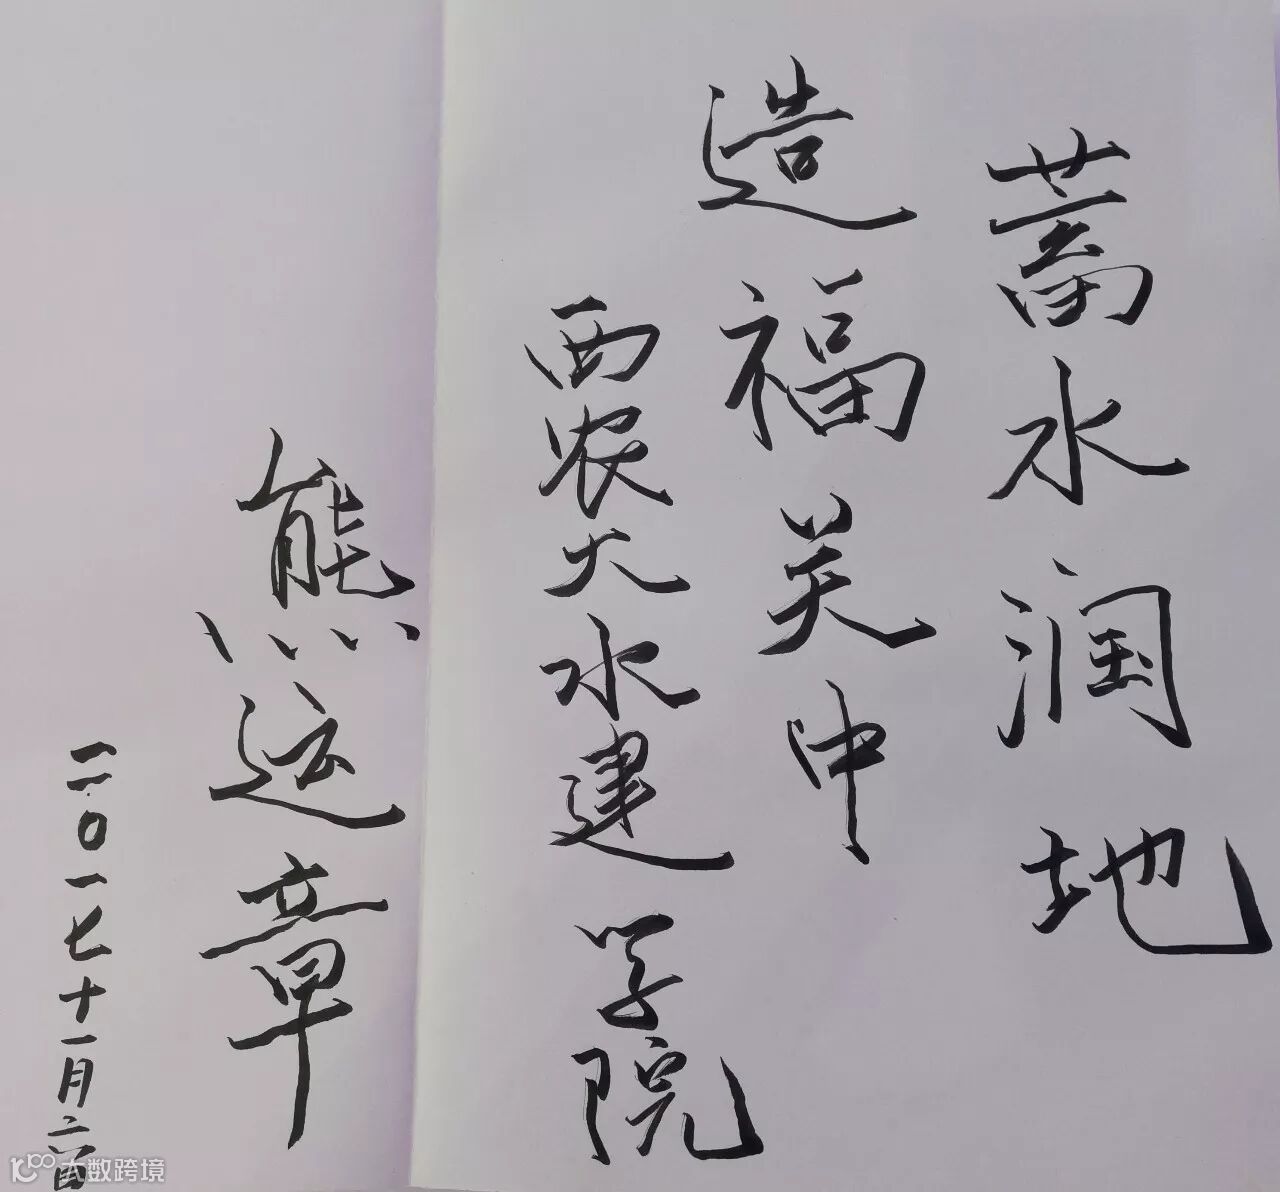 蓄水润地
造福关中
西农大水建学院
熊运章
二〇一七十一月二六日
大数跨境